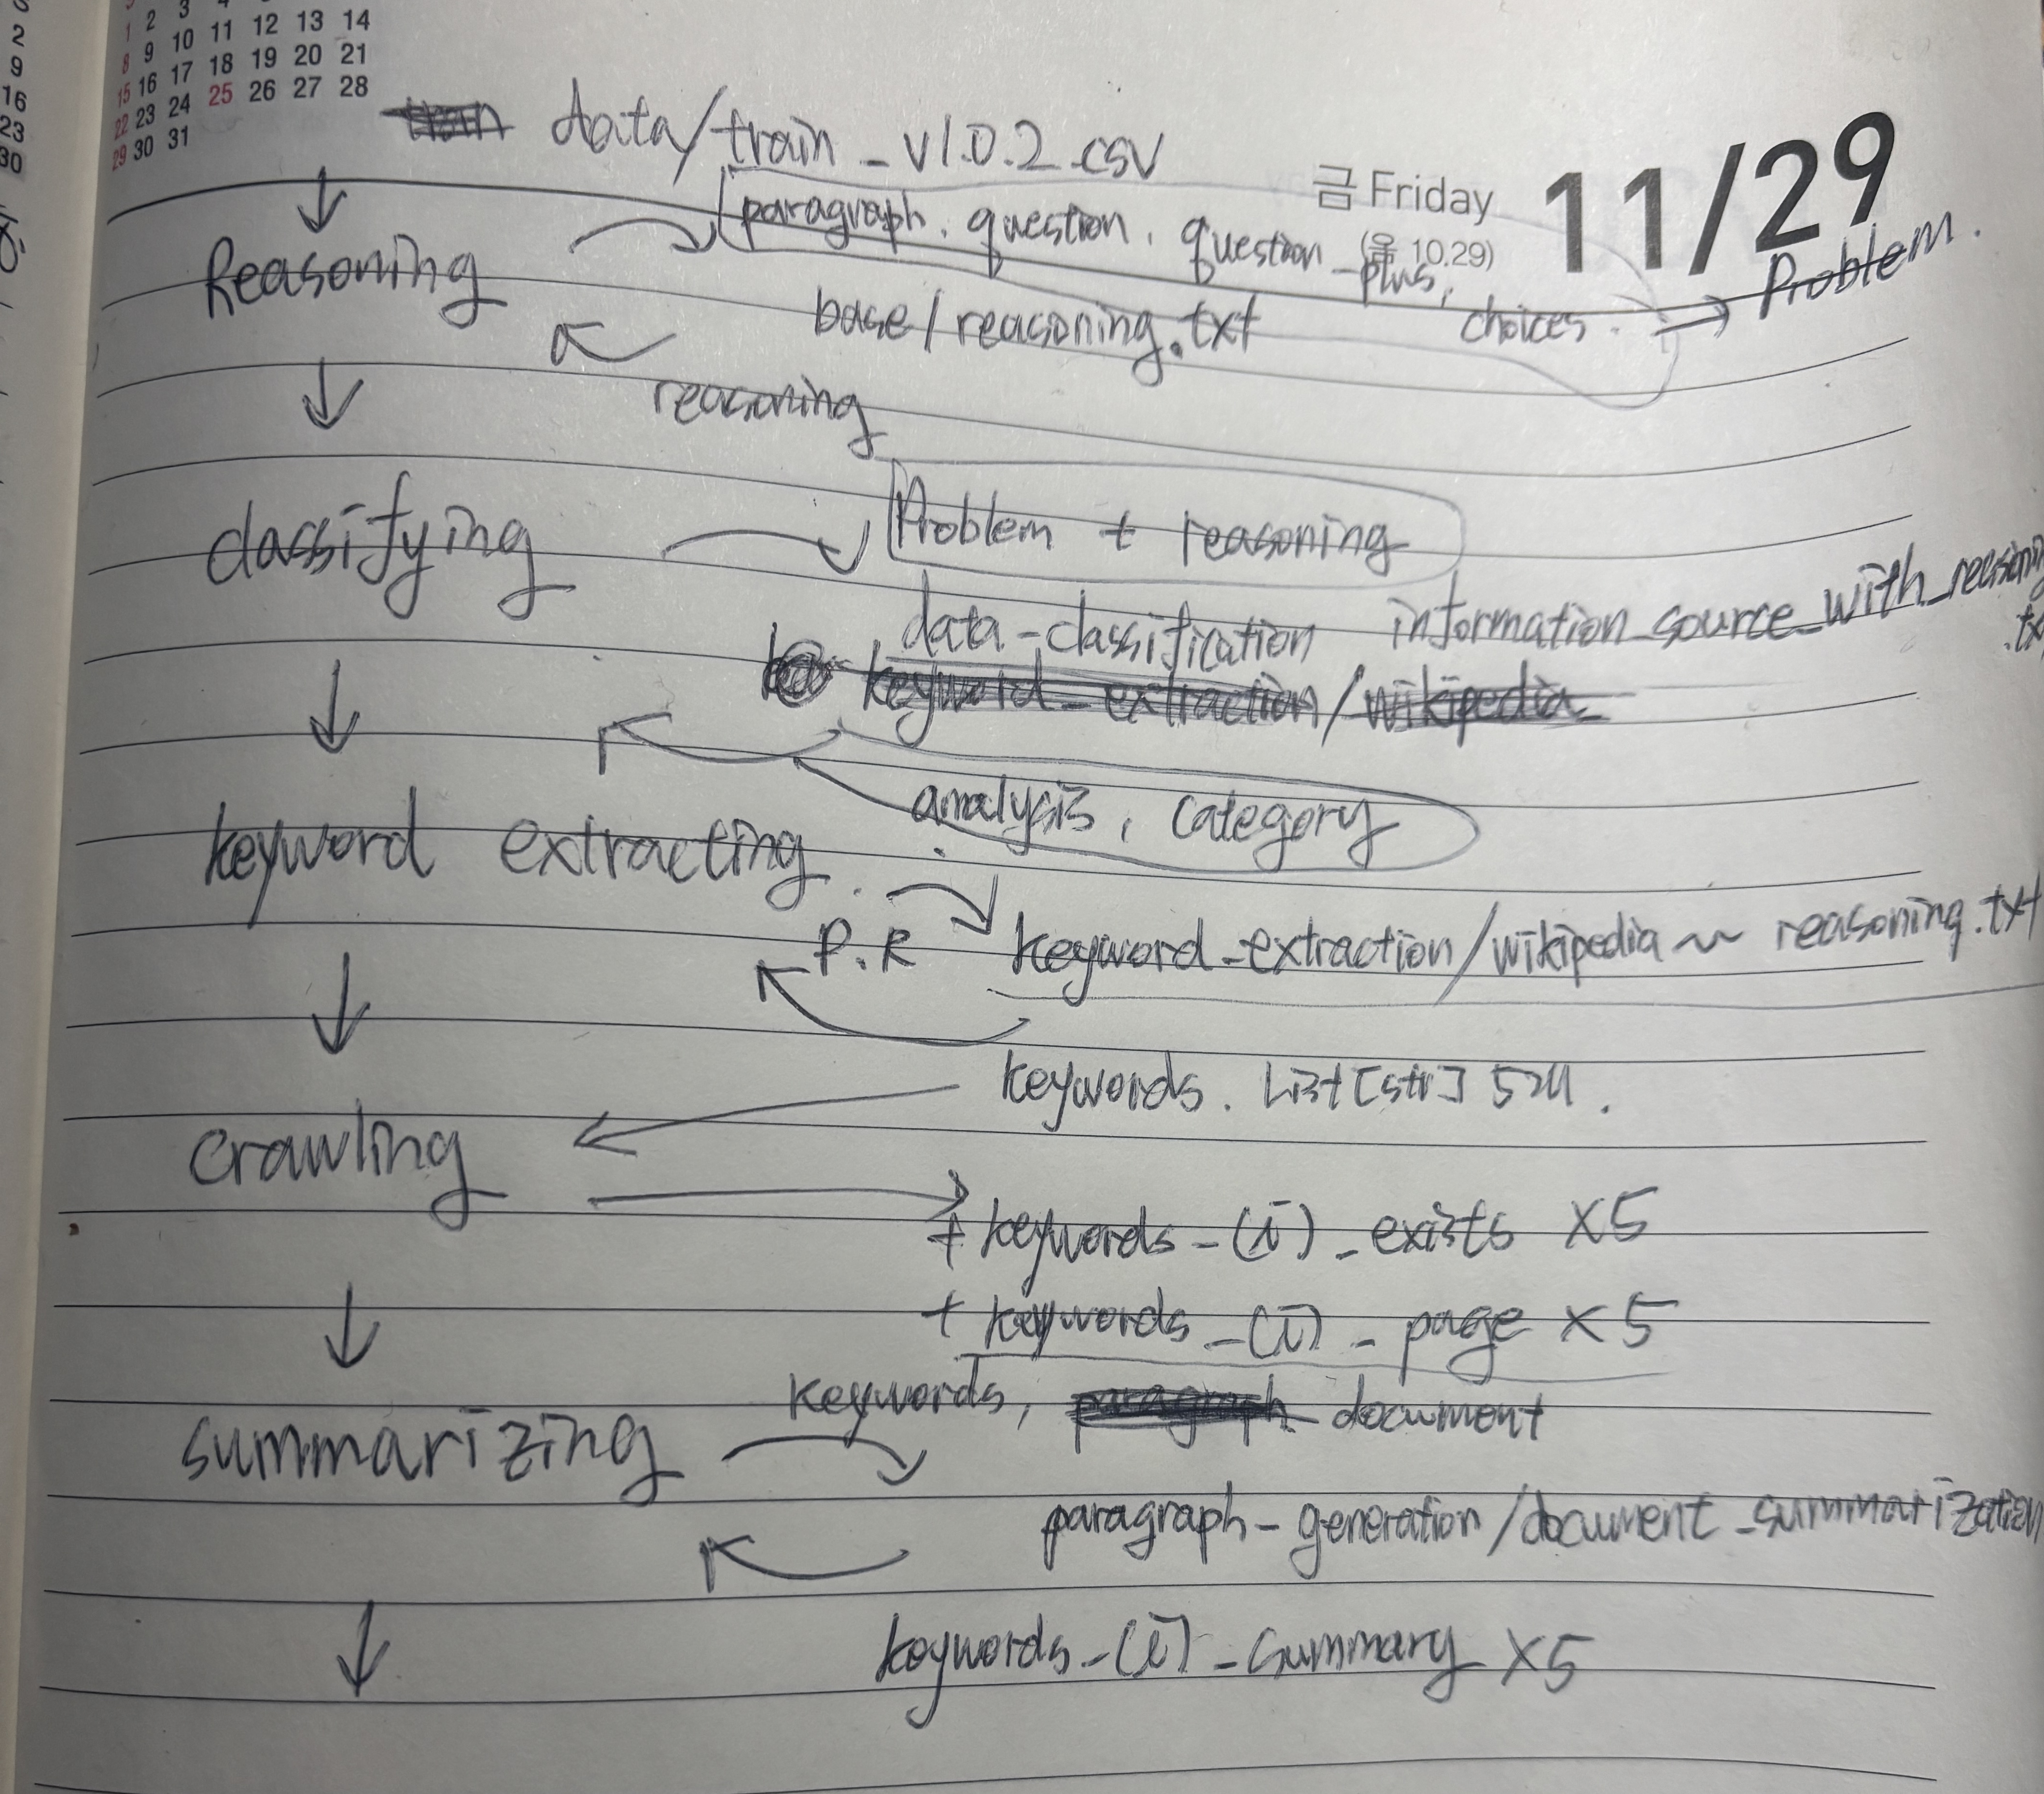 2 3 4
1 2
9 10 11 12 13 14
8
16 17 18 19 20 21
15
22 23 24 25 26 27 28
29 30 31
2
9
16
23
30
data/train_v1.0.2.csv
금 Friday 11/29
(음 10.29)
Reasoning
paragraph, question, question_plus, choices. → Problem.
base/reasoning.txt
reasoning
classifying
Problem + reasoning
data-classification information_source_with_reasoning
.tx
keyword_extraction/wikipedia_
analysis, category
keyword extracting.
P.R keyword_extraction/wikipedia ~ reasoning.txt
keywords. List[str] 5개.
crawling
+ keywords_(i)_exists ×5
+ keywords_(i)_page ×5
keywords, paragraph document
summarizing
paragraph-generation/document_summarization
keywords_(i)_summary ×5